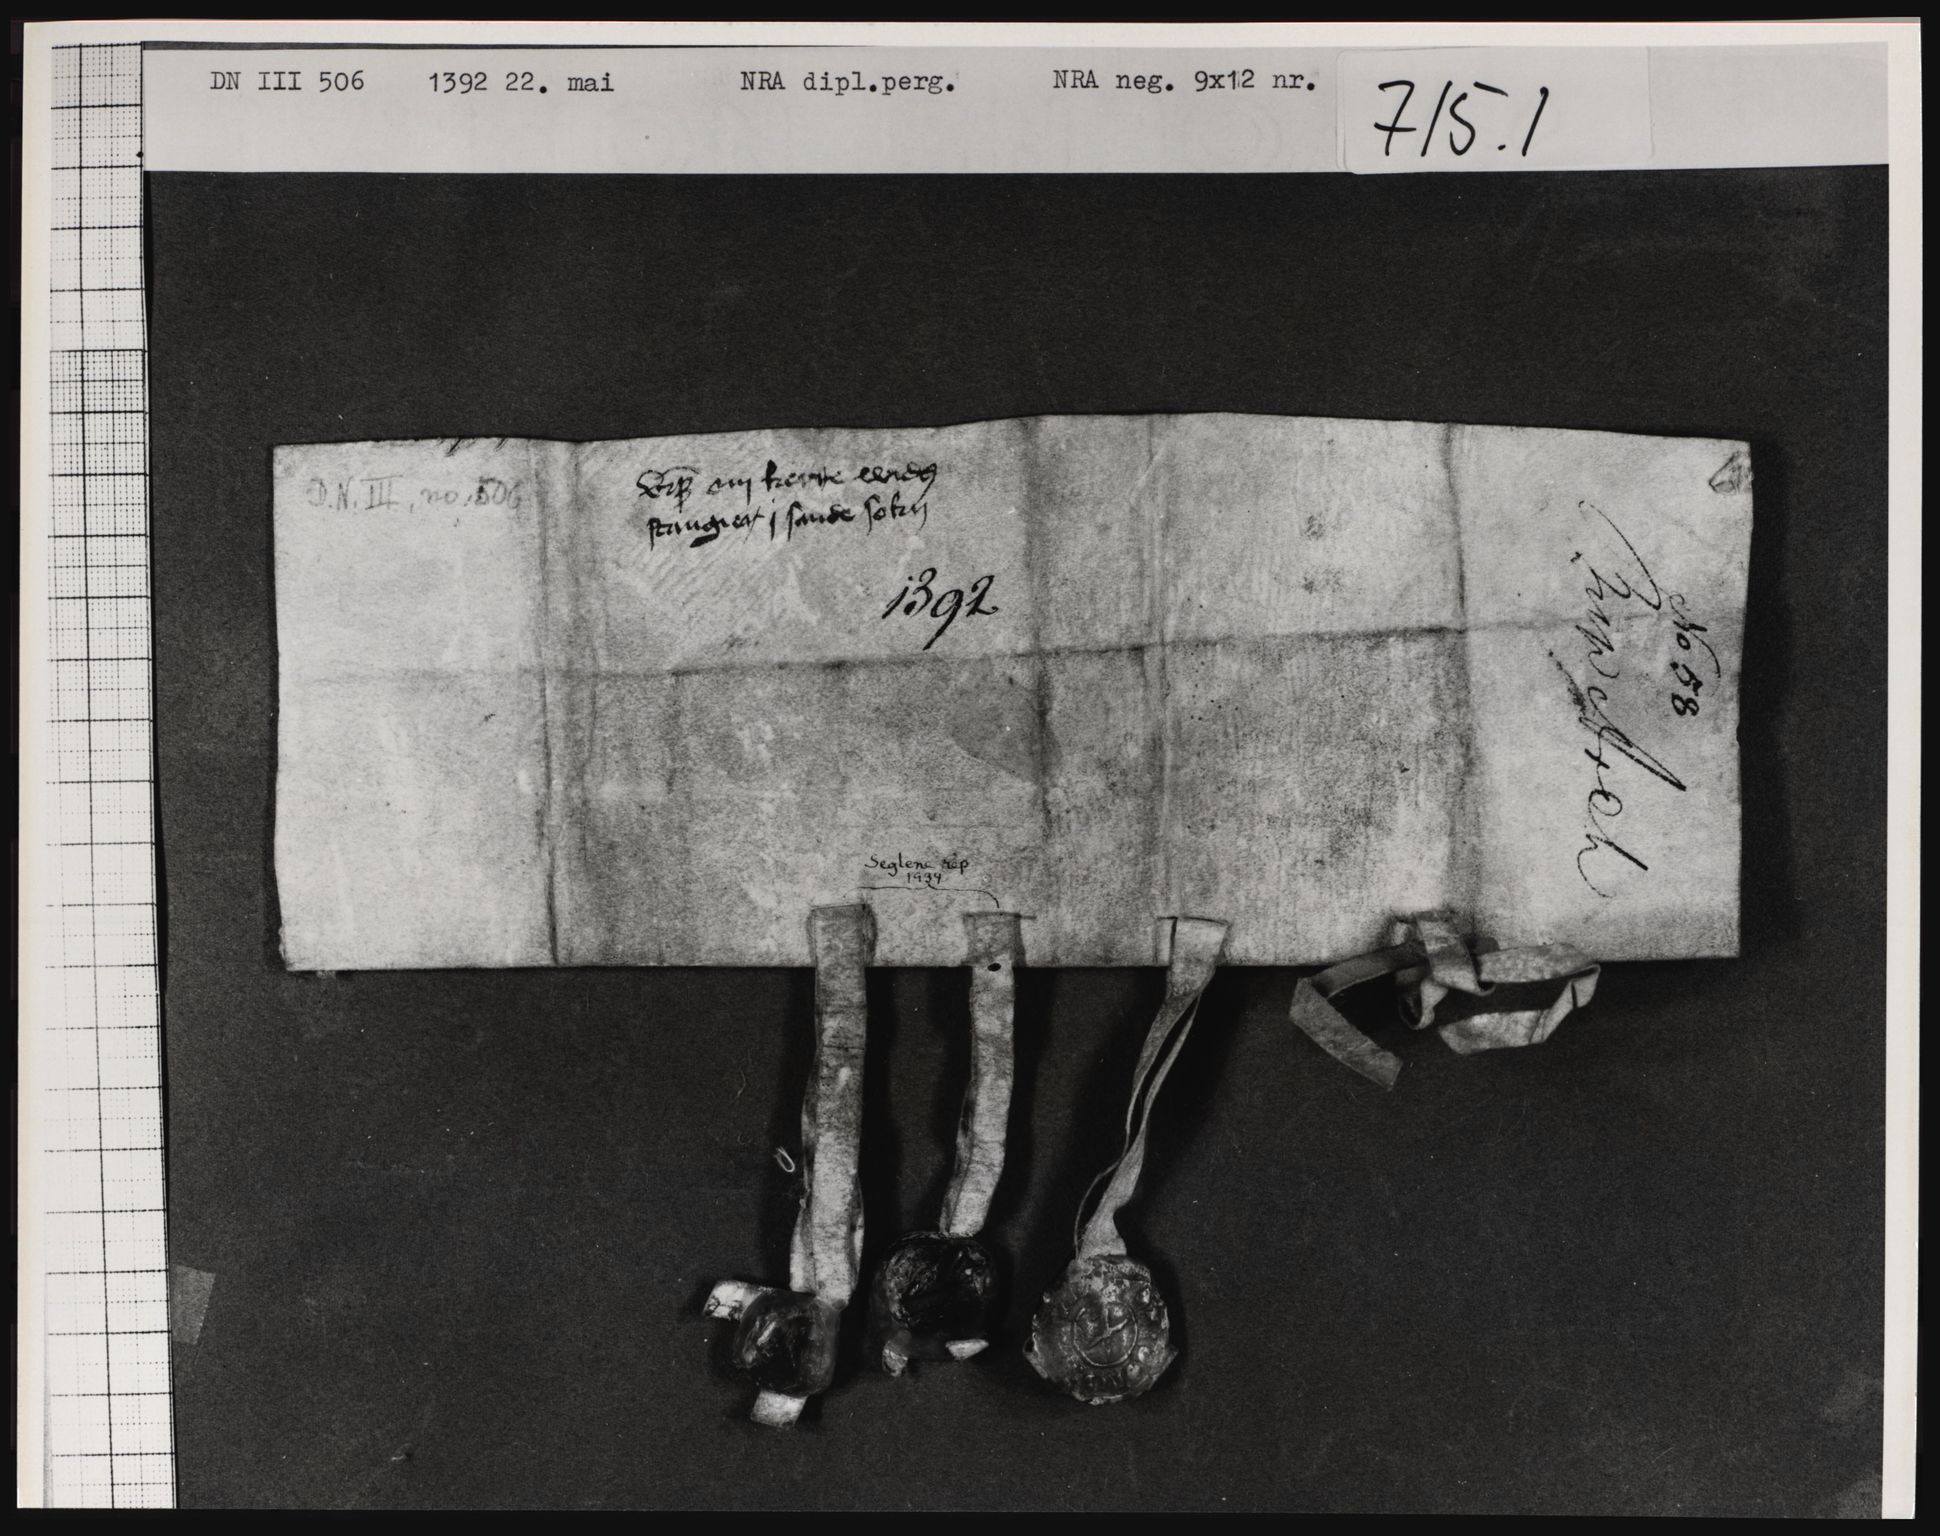 DN III 506 1392 22. mai NRA dipl.perg. NRA neg. 9x12 nr. 715.1
D.N. III, no. 506
om
j sande sokn
1392
No 58
Seglene rep
1934